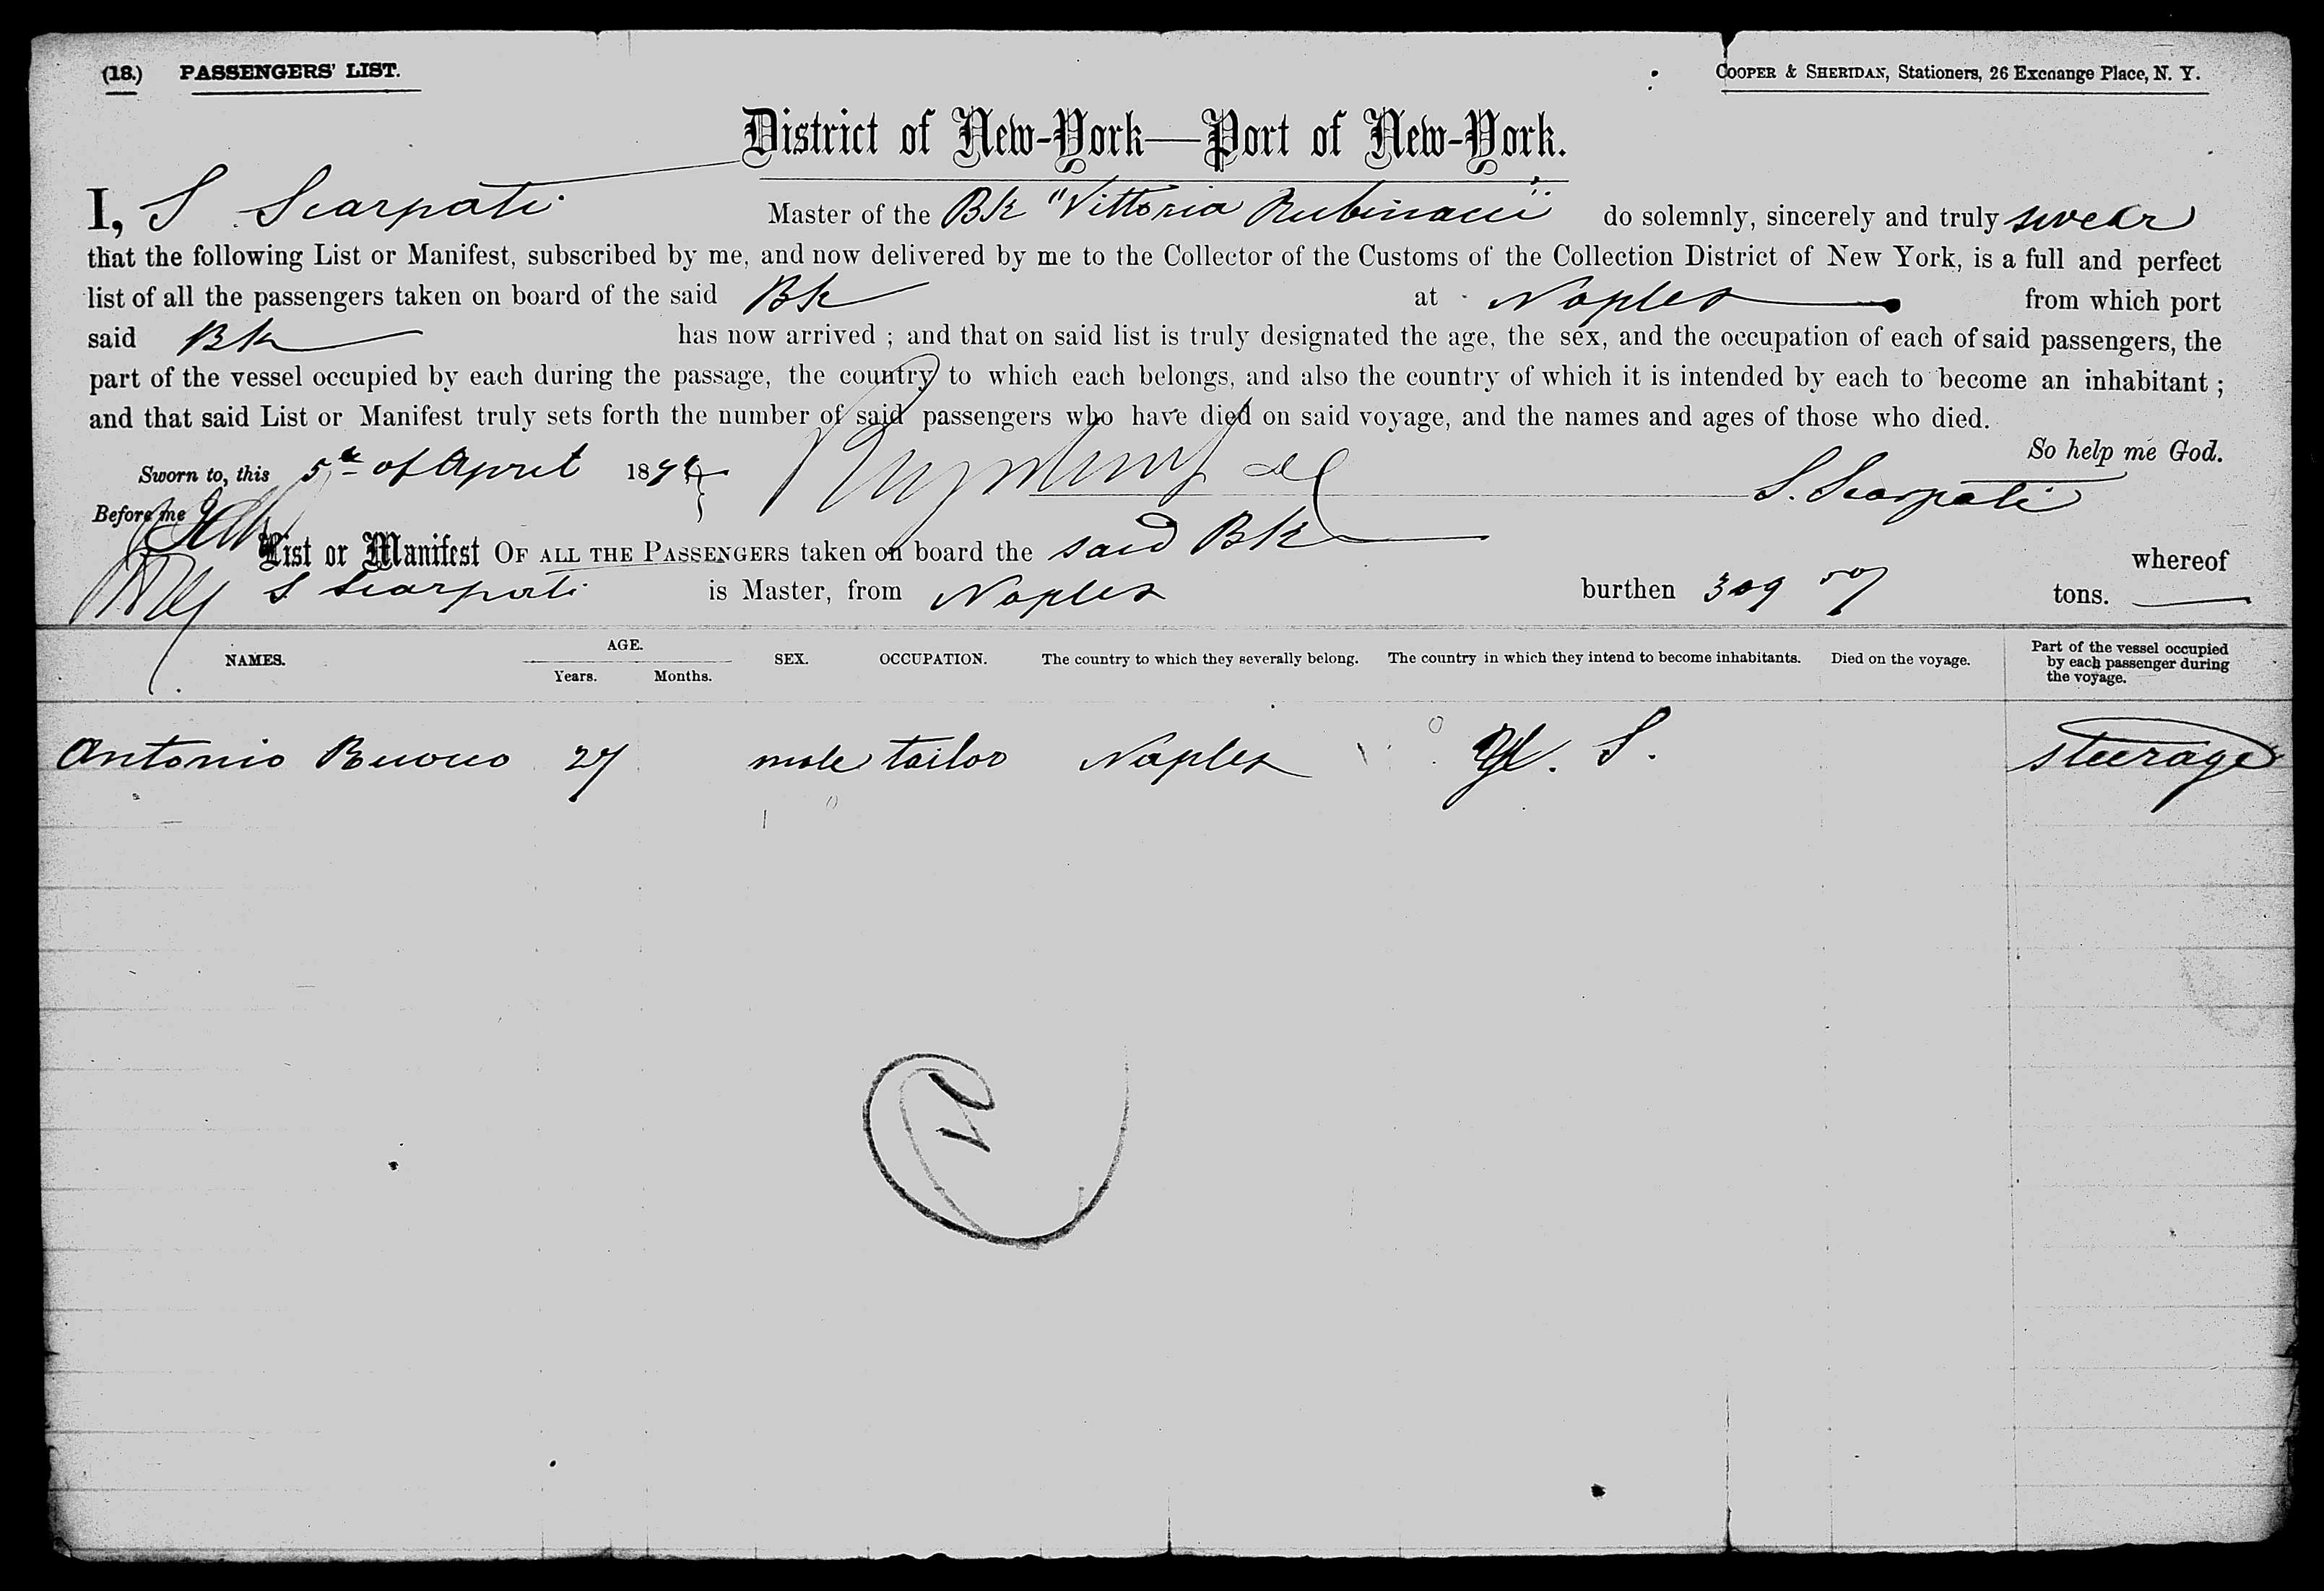 (18.) PASSENGERS' LIST.
COOPER & SHERIDAN, Stationers, 26 Exchange Place, N. Y.
District of New-York—Port of New-York.
I, S Scarpati Master of the Bk "Vittoria Rubinacci" do solemnly, sincerely and truly swear
that the following List or Manifest, subscribed by me, and now delivered by me to the Collector of the Customs of the Collection District of New York, is a full and perfect
list of all the passengers taken on board of the said Bk at Naples from which port
said Bk has now arrived ; and that on said list is truly designated the age, the sex, and the occupation of each of said passengers, the
part of the vessel occupied by each during the passage, the country to which each belongs, and also the country of which it is intended by each to become an inhabitant ;
and that said List or Manifest truly sets forth the number of said passengers who have died on said voyage, and the names and ages of those who died.
So help me God.
Sworn to, this 5th of April 187
S. Scarpati
Before me
List or Manifest OF ALL THE PASSENGERS taken on board the said Bk whereof
S Scarpati is Master, from Naples burthen 309 tons.
NAMES. AGE. Years. Months. SEX. OCCUPATION. The country to which they severally belong. The country in which they intend to become inhabitants. Died on the voyage. Part of the vessel occupied by each passenger during the voyage.
Antonio 27 male tailor Naples U. S. steerage